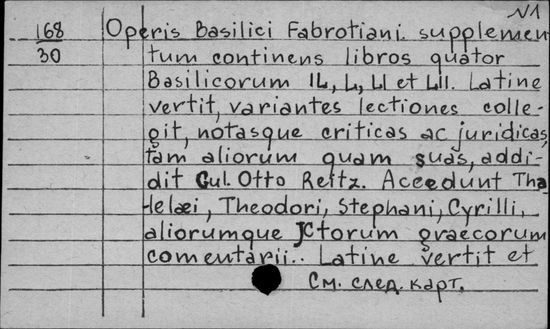 N1
168 Operis Basilici Fabrotiani supplemen-
30 tum continens libros quator
Basilicorum IL, L, LI et LII. Latine
vertit, variantes lectiones colle-
git, notasque criticas ac juridicas,
tam aliorum quam suas, addi-
dit Gul. Otto Reitz. Aceedunt Tha-
lelæi, Theodori, Stephani, Cyrilli,
aliorumque JCtorum graecorum
comentarii.. Latine vertit et
См. след. карт.